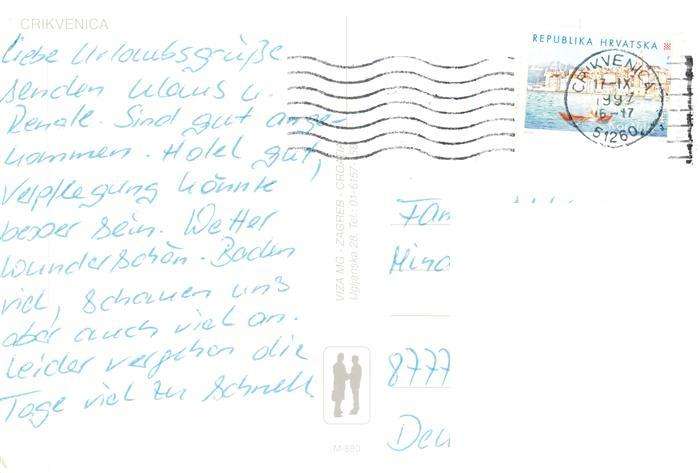 CRIKVENICA
Liebe Urlaubsgrüße
senden Klaus u.
Renate. Sind gut ange-
kommen. Hotel gut,
Verpflegung könnte
besser sein. Wetter
wunderschön. Baden
viel, schauen uns
aber auch viel an.
Leider vergehen die
Tage viel zu schnell
REPUBLIKA HRVATSKA
CRIKVENICA
17-IX
1997
16-17
51260
VIZA MG - ZAGREB
Fam
8777
M-890